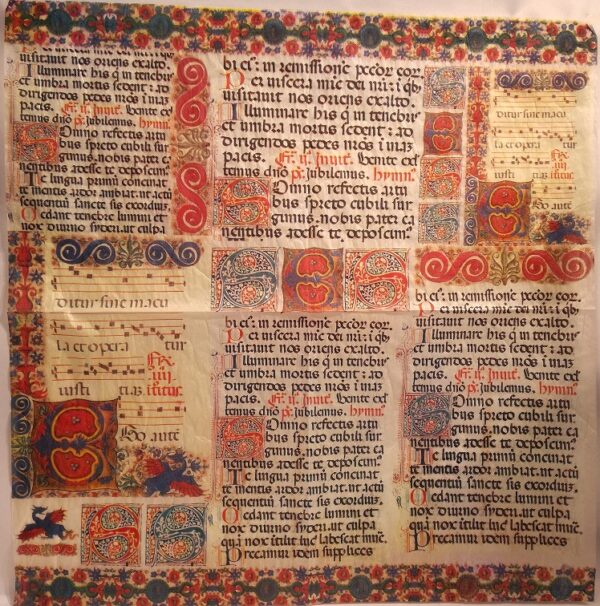 uisitauit nos oriens exalto.
Illuminare his q̃ in tenebris
et umbra mortis sedent: ad
dirigendos pedes nr̃os ĩ uiaz
pacis. Fr̃. ii. Inuit̃. Uenite ex
temus dño p̃s. Jubilemus. hymn.
Somno refectis artu
bus spreto cubili sur
gimus. nobis pater ca
nentibus adesse te deposcim
Te lingua primũ concinat
te mentis ardor ambiat. ut actũ
sequentiũ sancte sis exordiũ.
Cedant tenebre lumini et
nox diurno syderi. ut culpa
bi eis: in remissionẽ peccõr eor.
Per uiscera mie dei nr̃i: ĩ qb
uisitauit nos oriens exalto.
Illuminare his q̃ in tenebris
et umbra mortis sedent: ad
dirigendos pedes nr̃os ĩ uiaz
pacis. Fr̃. ii. Inuit̃. Uenite exl
temus dño p̃s. Jubilemus. Hymn.
Somno refectis artu
bus spreto cubili sur
gimus. nobis pater ca
nentibus adesse te deposcim
ditur sine macu
la et opera tur
iusti
Quo aute
ditur sine macu
la et opera tur
iusti tiaz
Quo aute
bi eis: in remissionẽ peccõr eor.
Per uiscera mie dei nr̃i: ĩ qb
uisitauit nos oriens exalto.
Illuminare his q̃ in tenebris
et umbra mortis sedent: ad
dirigendos pedes nr̃os ĩ uiaz
pacis. Fr̃. ii. Inuit̃. Uenite exl
temus dño p̃s. Jubilemus. Hymn.
Somno refectis artu
bus spreto cubili sur
gimus. nobis pater ca
nentibus adesse te deposcim
Te lingua primũ concinat
te mentis ardor ambiat. ut actũ
sequentiũ sancte sis exordiũ.
Cedant tenebre lumini et
nox diurno syderi. ut culpa
quã nox ĩtulit lucĩ labescat
Precamur idem supplices
bi eis: in remissionẽ peccõr eor.
Per uiscera mie dei nr̃i: ĩ qb
uisitauit nos oriens exalto.
Illuminare his q̃ in tenebris
et umbra mortis sedent: ad
dirigendos pedes nr̃os ĩ uiaz
pacis. Fr̃. ii. Inuit̃. Uenite exl
temus dño p̃s. Jubilemus. Hymn.
Somno refectis artu
bus spreto cubili sur
gimus. nobis pater ca
nentibus adesse te deposcim
Te lingua primũ concinat
te mentis ardor ambiat. ut actũ
sequentiũ sancte sis exordiũ.
Cedant tenebre lumini et
nox diurno syderi. ut culpa
quã nox ĩtulit lucĩ labescat
Precamur idem supplices